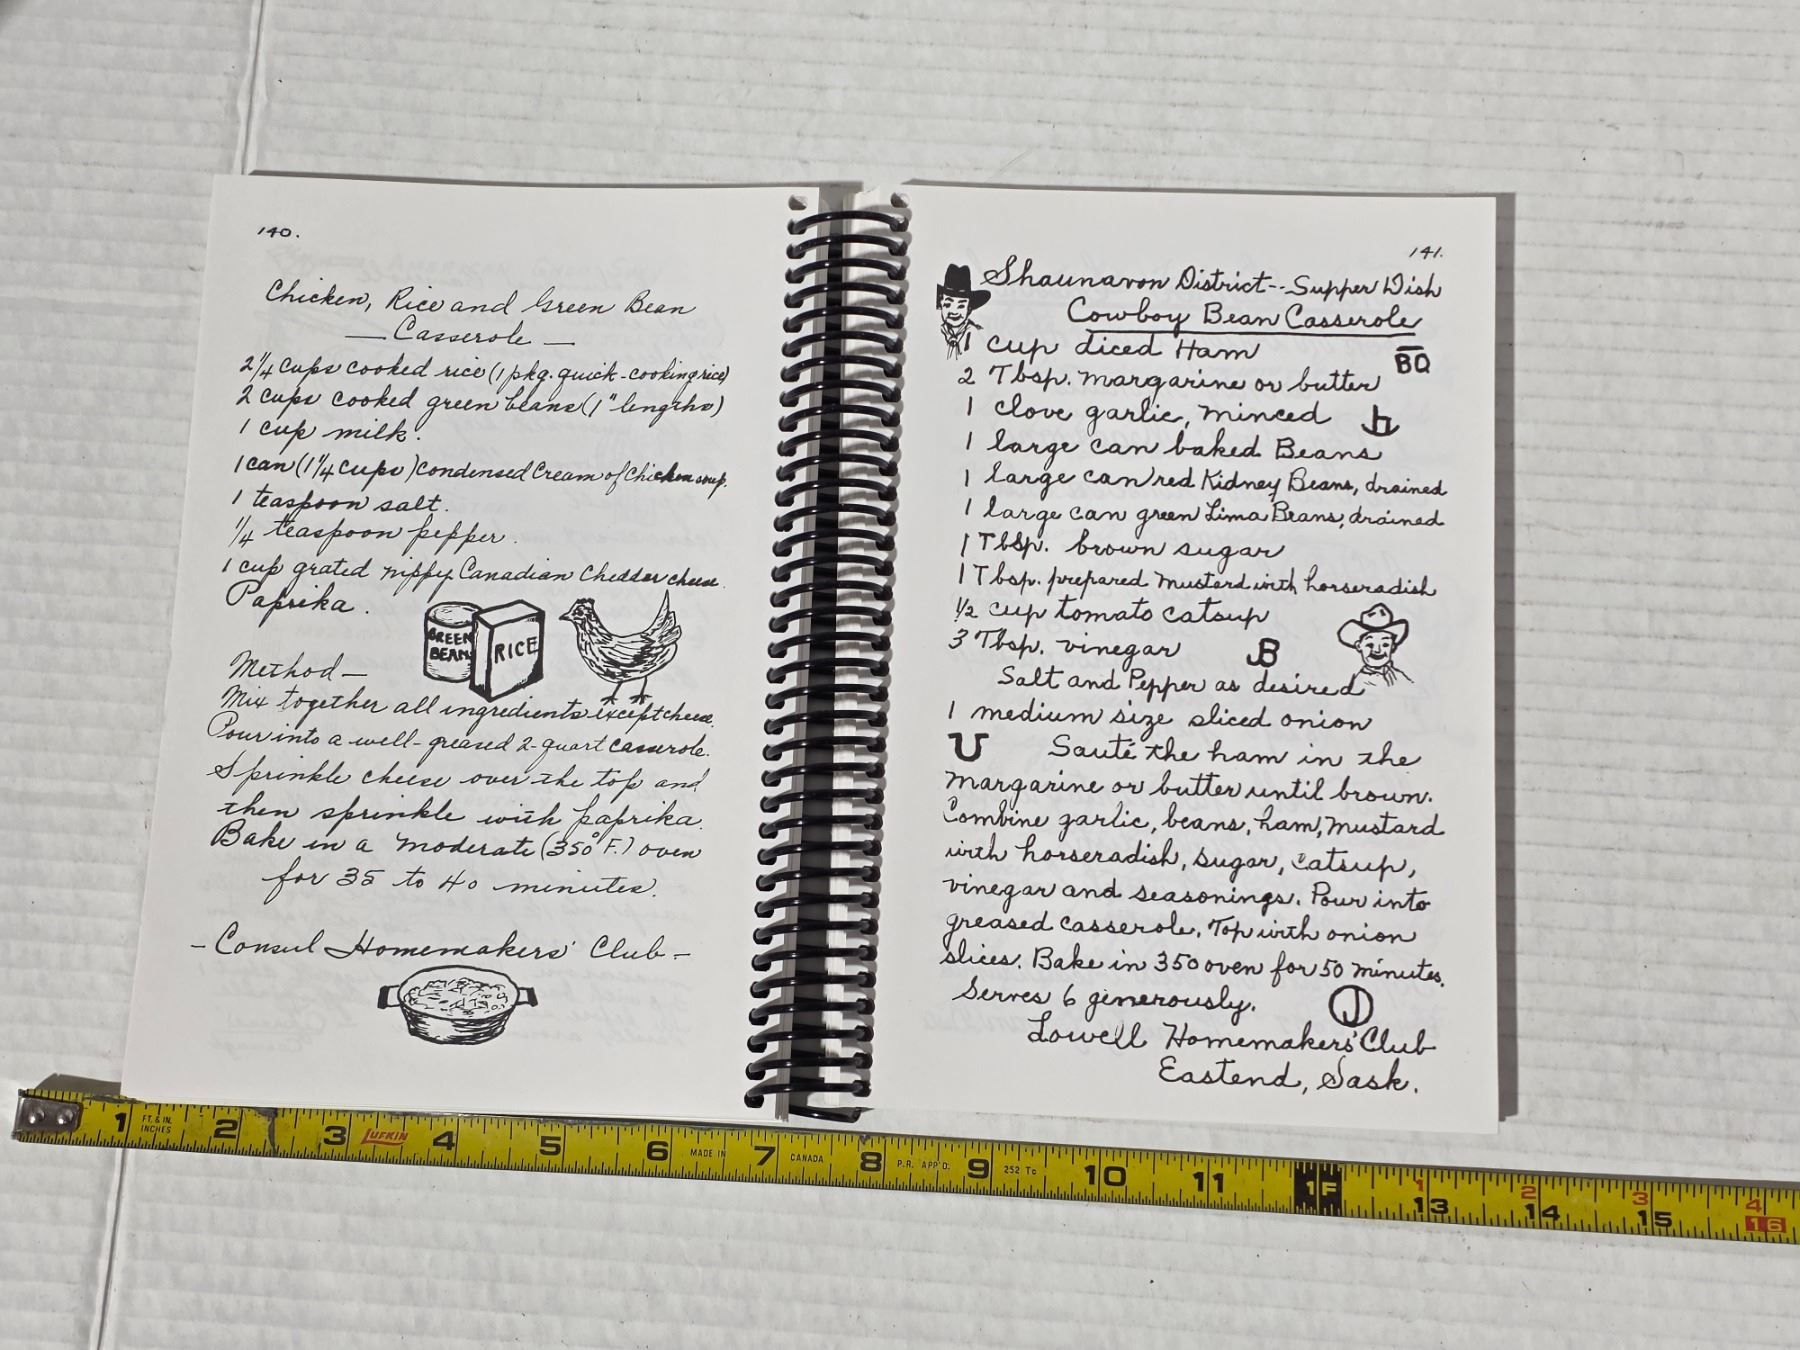 140.
Chicken, Rice and Green Bean
— Casserole —
2 1/4 cups cooked rice (1 pkg. quick-cooking rice)
2 cups cooked green beans (1" lengths)
1 cup milk.
1 can (1 1/4 cups) condensed Cream of Chicken soup.
1 teaspoon salt.
1/4 teaspoon pepper.
1 cup grated nippy Canadian Cheddar cheese.
Paprika.
GREEN
BEAN
RICE
Method —
Mix together all ingredients except cheese.
Pour into a well-greased 2-quart casserole.
Sprinkle cheese over the top and
then sprinkle with paprika.
Bake in a moderate (350° F.) oven
for 35 to 40 minutes.
- Consul Homemakers' Club -
141.
Shaunavon District -- Supper Dish
Cowboy Bean Casserole
1 cup diced Ham
BQ
2 Tbsp. margarine or butter
1 clove garlic, minced
1 large can baked Beans
1 large can red Kidney Beans, drained
1 large can green Lima Beans, drained
1 Tbsp. brown sugar
1 Tbsp. prepared mustard with horseradish
1/2 cup tomato catsup
3 Tbsp. vinegar
JB
Salt and Pepper as desired
1 medium size sliced onion
U
Sauté the ham in the
margarine or butter until brown.
Combine garlic, beans, ham, mustard
with horseradish, sugar, catsup,
vinegar and seasonings. Pour into
greased casserole. Top with onion
slices. Bake in 350 oven for 50 minutes.
Serves 6 generously.
J
Lowell Homemakers' Club
Eastend, Sask.
1 FT. & IN. INCHES 2 3 LUFKIN 4 5 6 MADE IN 7 CANADA 8 P.R. APP'D. 9 252 Tc 10 11 1F 1 13 2 14 3 15 4 16